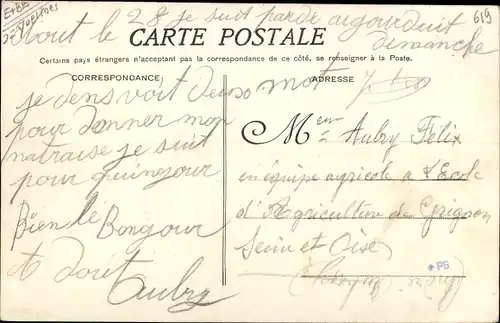 619
Aout le 28 je suit parde aujourduit
dimanche
CARTE POSTALE
Certains pays étrangers n'acceptant pas la correspondance de ce côté, se renseigner à la Poste.
CORRESPONDANCE
je dens voit deuso mot
pour donner mon
matraise je suit
pour quinejour
Bien le Bonjour
A dout
Aubry
ADRESSE
Meur Aubry Félix
en équipe agricole a l'Ecole
d'Agriculture de Grignon
Seine et Oise
*PS